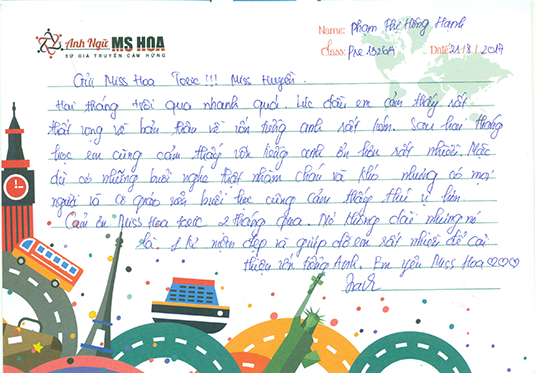 Anh Ngữ MS HOA
SỨ GIẢ TRUYỀN CẢM HỨNG
Name: Phạm Thị Hồng Hạnh
Class: Pre Date: 21/8/2017
Gửi Miss Hoa Toeic!!! Miss Huyền.
Hai tháng trôi qua nhanh quá. Lúc đầu em cảm thấy rất
thất vọng về bản thân về vốn tiếng anh rất kém. Sau hai tháng
học em cũng cảm thấy vốn tiếng anh ổn hơn rất nhiều. Mặc
dù có những buổi nghe thật nhàm chán và khó nhưng có mọi
người và cô giáo nên buổi học cũng cảm thấy thú vị hơn.
Cảm ơn Miss Hoa toeic 2 tháng qua. Nó không dài nhưng nó
là 1 kỉ niệm đẹp và giúp đỡ em rất nhiều để cải
thiện vốn tiếng Anh. Em yêu Miss Hoa ♡♡♡